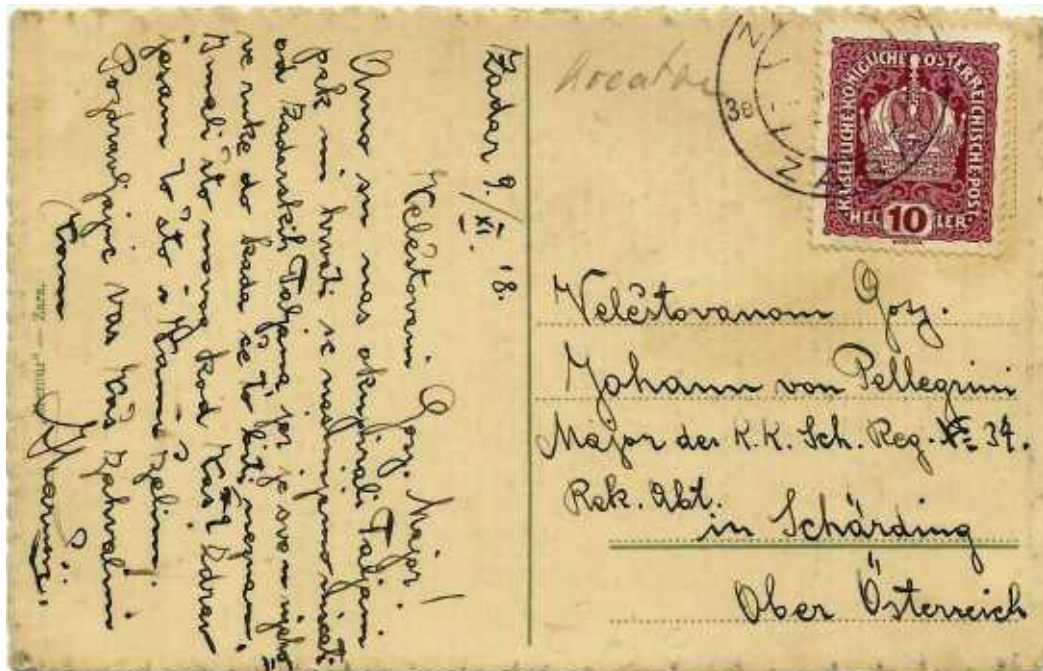 Zadar 9./XI. 18.
Velčštovani Gosp. Major!
Amo su nas okupirali Taljani
pak mi hrvati se nasmijemo
od Zadarskih Taljana, jer je sve u njiho
ve ruke do kada će to biti neznam.
Imali što novog kod Vas? Zdrav
jesam to što i Vami želim.
Pozdravljajuć Vas Vaš zahvalni
kreator
KAISERLICHE KÖNIGLICHE ÖSTERREICHISCHE POST
HELLER 10
30
ZARA
Velčštovanom Gosp.
Johann von Pellegrini
Major des K.K. Sch. Reg. No 34.
Rek. Abt.
in Schärding
Ober Österreich
Zara.